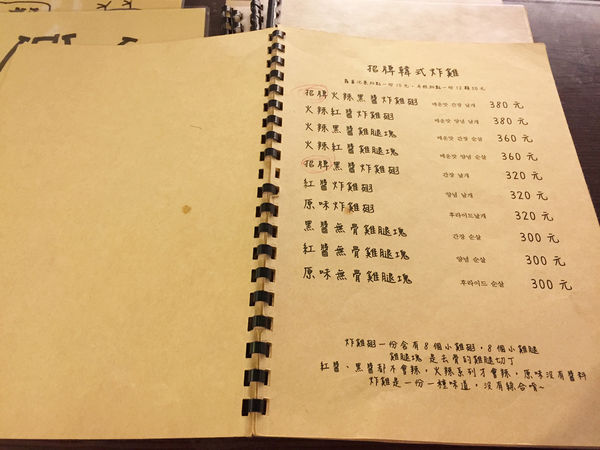 招牌韓式炸雞
招牌火辣黑醬炸雞翅 매운맛 간장 날개 380元
火辣紅醬炸雞翅 매운맛 양념 날개 380元
火辣黑醬雞腿塊 매운맛 간장 순살 360元
火辣紅醬雞腿塊 매운맛 양념 순살 360元
招牌黑醬炸雞翅 간장 날개 320元
紅醬炸雞翅 양념 날개 320元
原味炸雞翅 후라이드날개 320元
黑醬無骨雞腿塊 간장 순살 300元
紅醬無骨雞腿塊 양념 순살 300元
原味無骨雞腿塊 후라이드 순살 300元
炸雞翅一份含有8個小雞翅,8個小雞腿
雞腿塊 是去骨的雞腿切丁
紅醬、黑醬都不會辣,火辣系列才會辣,原味沒有醬料
炸雞是一份一種味道,沒有綜合唷~